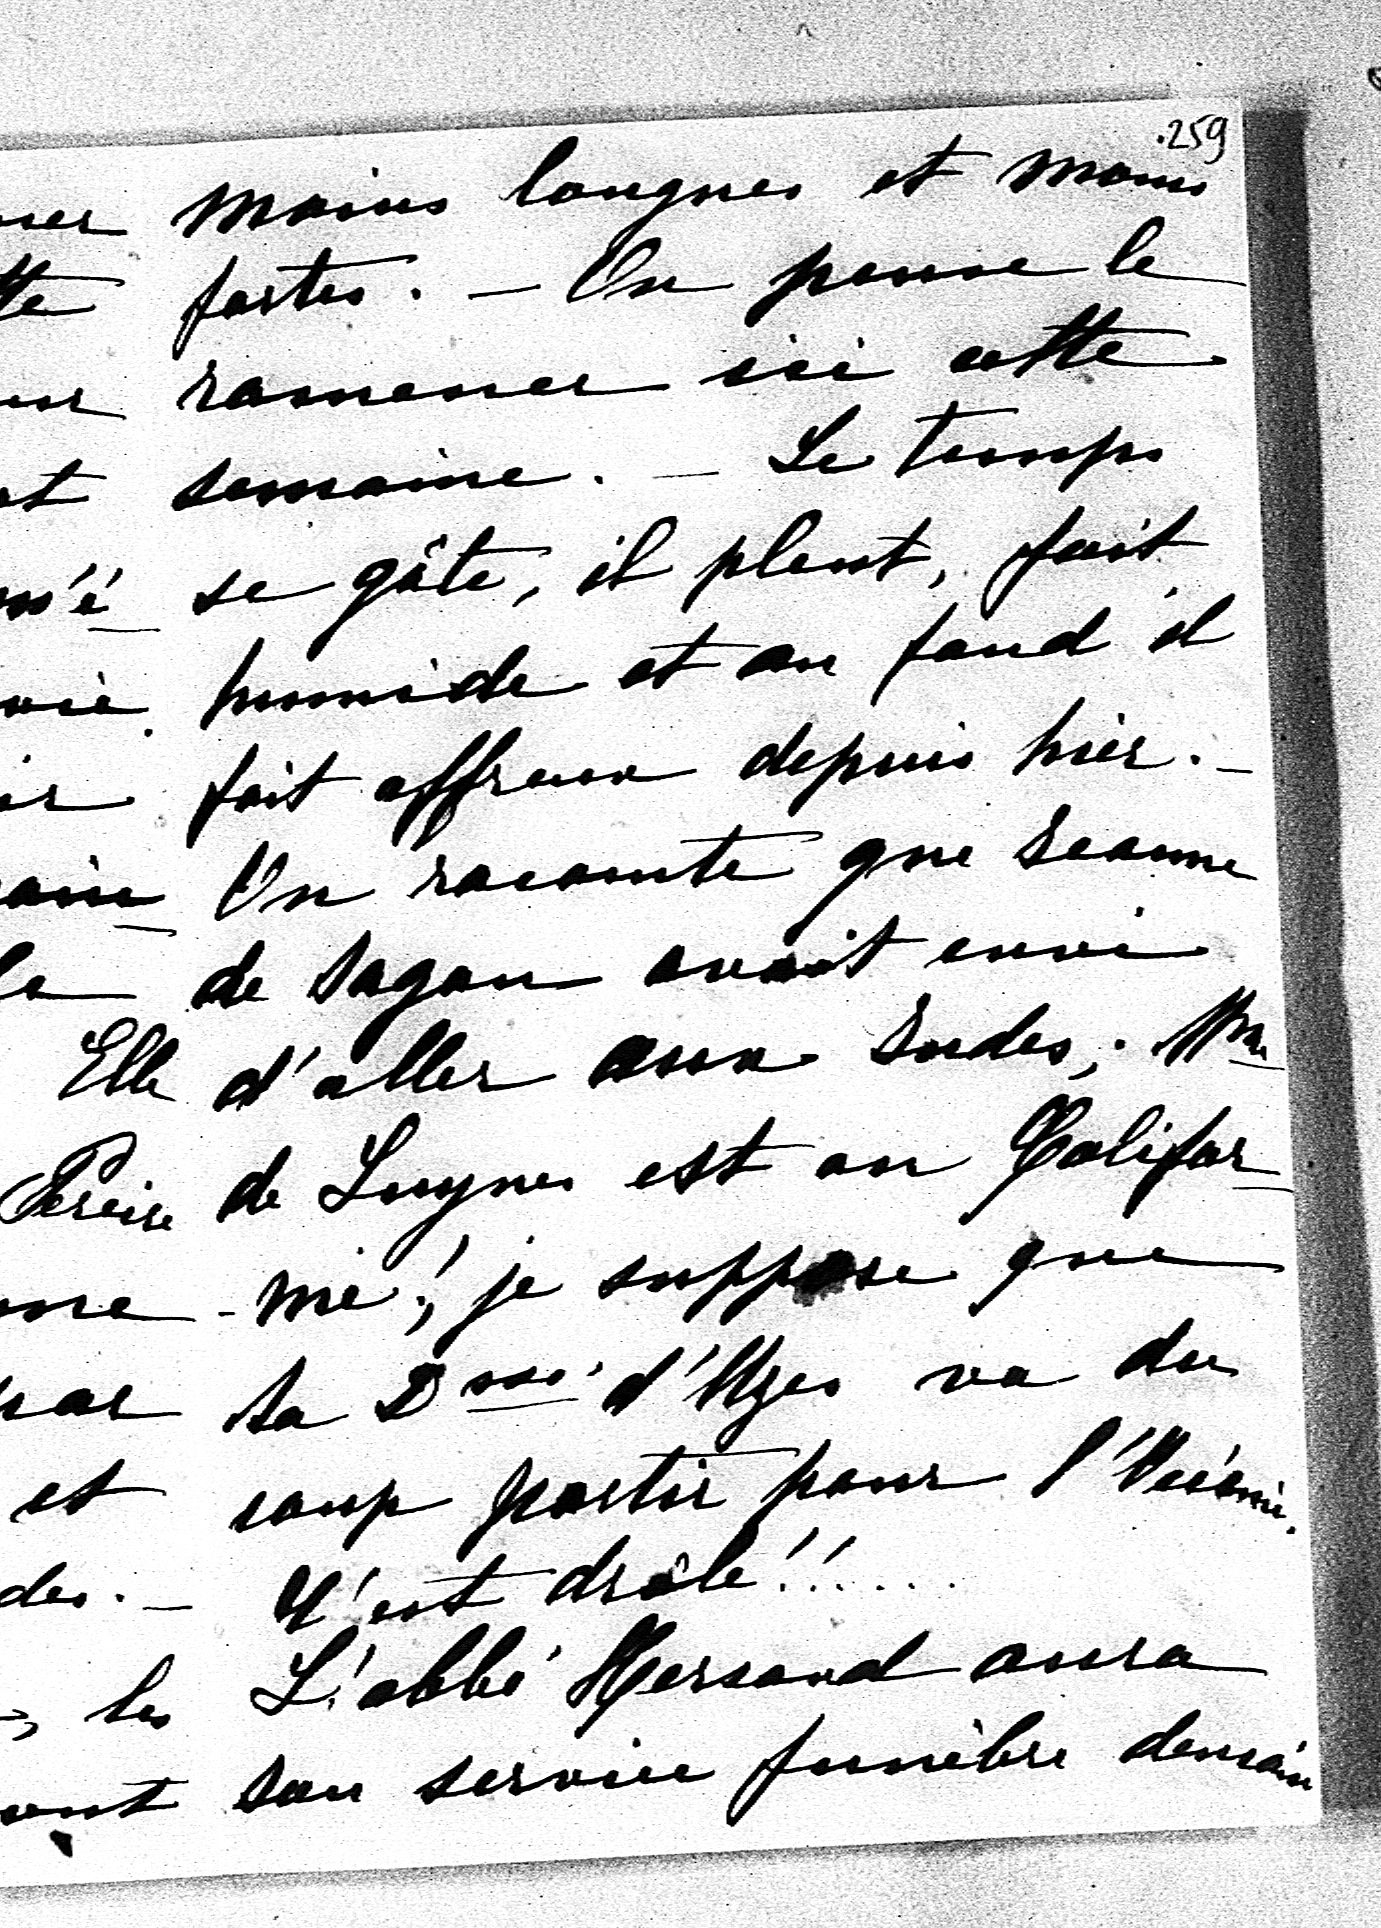 259
moins longues et moins
fortes. — On pense le
ramener ici cette
semaine. — Le temps
se gâte, il pleut, fait
humide et au fond il
fait affreux depuis hier. —
On raconte que Jeanne
de Sagan avait envi
Elle d'aller aux Indes, Mme
Pereire de Luynes est en Califor
-nie! je suppose que
la Dsse d'Uzes va du
et coup partir pour l'Océanie.
des. — C'est drôle!!.....
, les L'abbé Hersand aura
son service funèbre demain